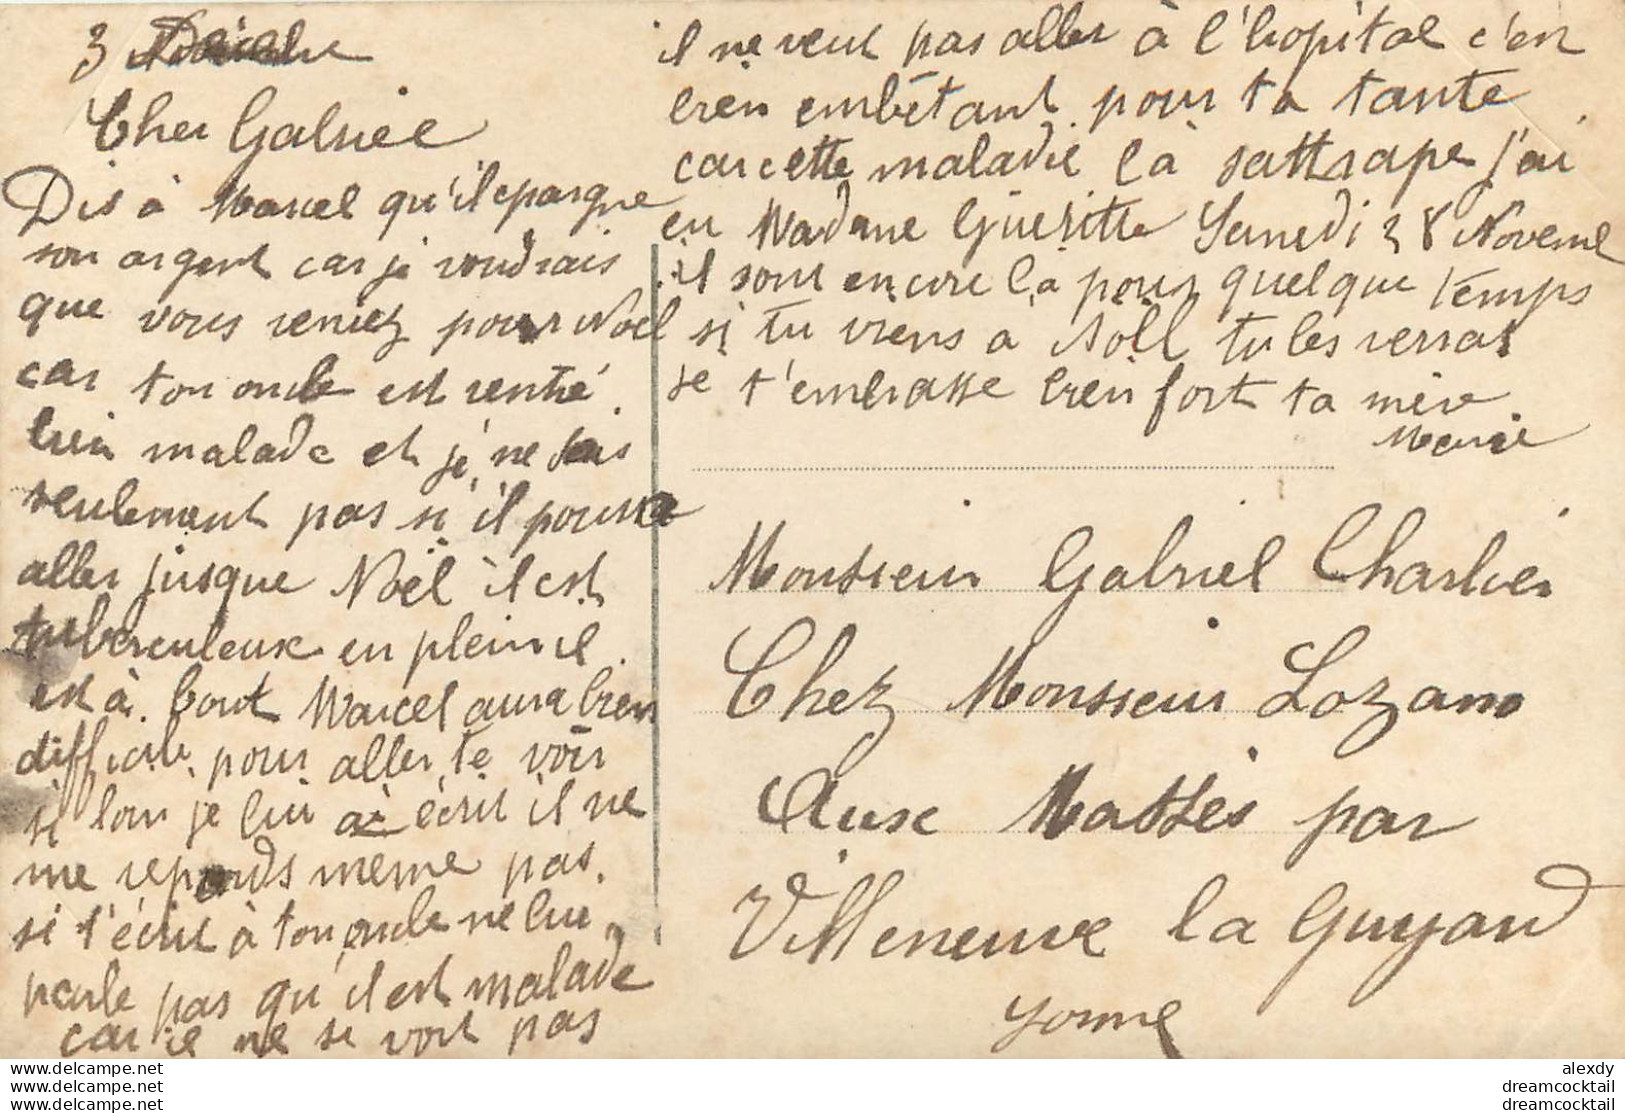 3 Décembre
Cher Gabriel
Dis à Marcel qu'il epargne
son argent car je voudrais
que vous veniez pour Noël
car ton oncle est rentré
bien malade et je ne sais
seulement pas si il pourra
aller jusque Noël il est
tuberculeux en plein il
est à bout Marcel aura bien
difficile pour aller te voir
si loin je lui ai écrit il ne
me reponds même pas.
si t'écrit à ton oncle ne lui
parle pas qu'il est malade
car il ne se voit pas
il ne veut pas aller à l'hopital c'en
bien embêtant pour ta tante
car cette maladie là sattrape j'ai
eu Madame Gueritte Samedi 28 Novembre
il sont encore là pour quelque temps
si tu viens a Noll tu les verras
je t'embrasse bien fort ta mère
Marie
Monsieur Gabriel Charlier
Chez Monsieur Lozano
Aux Masses par
Villeneuve la Guyard
Yonne
www.delcampe.net
www.delcampe.net
www.delcampe.net
alexdy
dreamcocktail
dreamcocktail